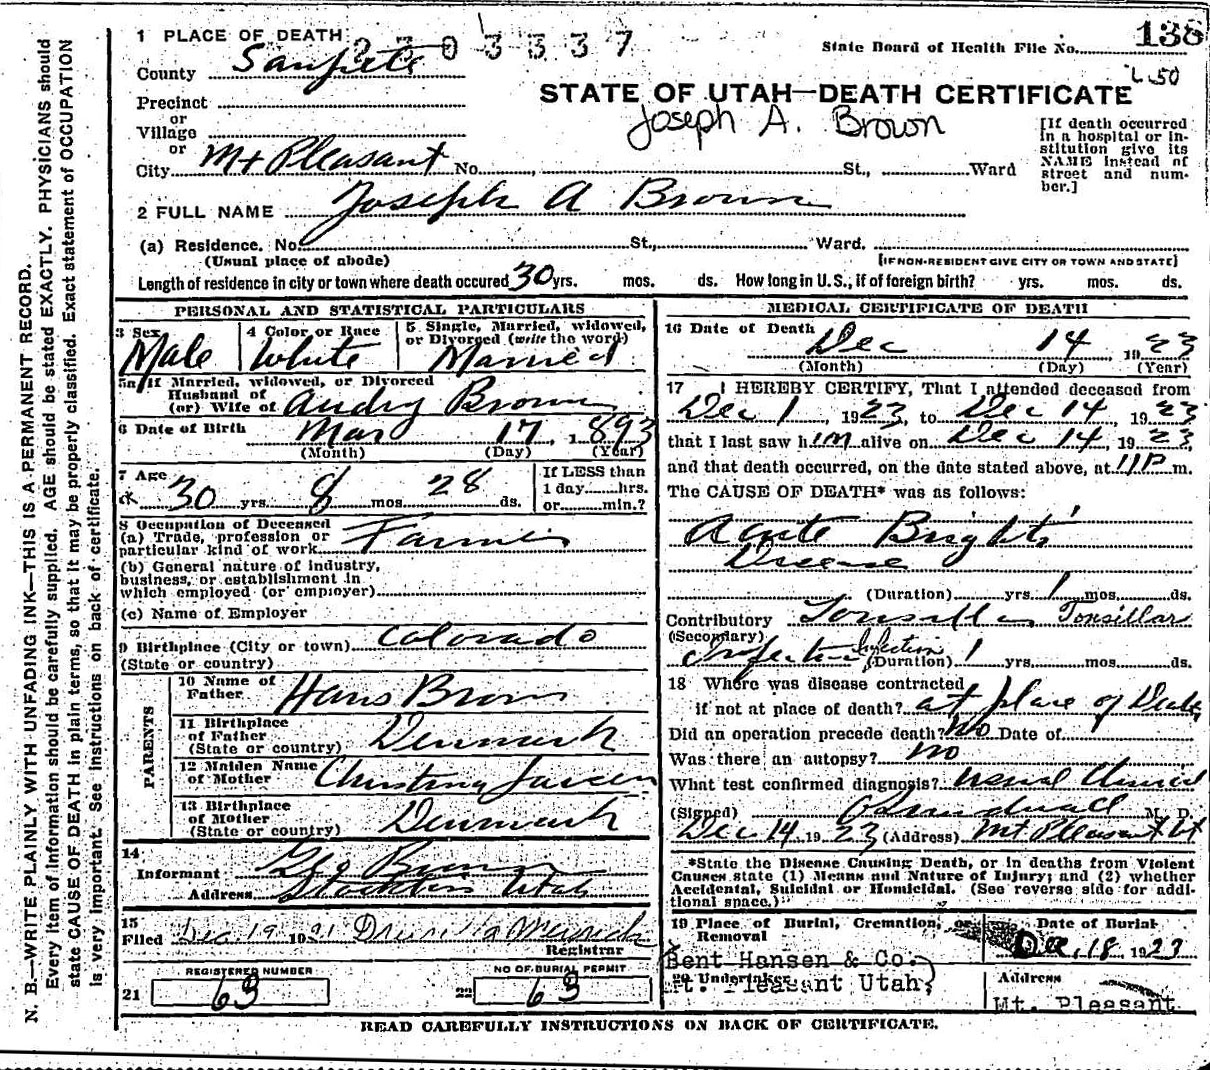 1 PLACE OF DEATH 2303337
State Board of Health File No. 138
County Sanpete
Precinct
or
Village
or
City Mt Pleasant No. St., Ward
STATE OF UTAH—DEATH CERTIFICATE
Joseph A. Brown
[If death occurred in a hospital or institution give its NAME instead of street and number.]
2 FULL NAME Joseph A Brown
(a) Residence. No. St., Ward.
(Usual place of abode)
[IF NON-RESIDENT GIVE CITY OR TOWN AND STATE]
Length of residence in city or town where death occured 30 yrs. mos. ds. How long in U.S., if of foreign birth? yrs. mos. ds.
PERSONAL AND STATISTICAL PARTICULARS
3 Sex Male
4 Color or Race White
5 Single, Married, widowed, or Divorced (write the word) Married
5a If Married, widowed, or Divorced
Husband of
(or) Wife of Audry Brown
6 Date of Birth Mar 17, 1893
(Month) (Day) (Year)
7 Age 30 yrs. 8 mos. 28 ds.
If LESS than
1 day hrs.
or min.?
8 Occupation of Deceased
(a) Trade, profession or
particular kind of work Farmer
(b) General nature of industry,
business, or establishment in
which employed (or employer)
(c) Name of Employer
9 Birthplace (City or town) Colorado
(State or country)
PARENTS
10 Name of
Father Hans Brown
11 Birthplace
of Father
(State or country) Denmark
12 Maiden Name
of Mother Christena Larsen
13 Birthplace
of Mother
(State or country) Denmark
14
Informant Geo Brown
Address Utah
15
Filed Dec 19
Registrar
REGISTERED NUMBER
21 63
NO OF BURIAL PERMIT
22 63
MEDICAL CERTIFICATE OF DEATH
16 Date of Death
Dec 14, 1923
(Month) (Day) (Year)
17 I HEREBY CERTIFY, That I attended deceased from
Dec 1, 1923, to Dec 14, 1923
that I last saw him alive on Dec 14, 1923,
and that death occurred, on the date stated above, at 11P m.
The CAUSE OF DEATH* was as follows:
Acute Bright's
Disease
(Duration) yrs. 1 mos. ds.
Contributory Tonsillar Tonsillar
(Secondary)
Infection Infection (Duration) 1 yrs. mos. ds.
18 Where was disease contracted
if not at place of death? at place of Death
Did an operation precede death? No Date of
Was there an autopsy? no
What test confirmed diagnosis? usual Clinical
(Signed) M. D.
Dec 14, 1923 (Address) Mt Pleasant Ut
*State the Disease Causing Death, or in deaths from Violent
Causes state (1) Means and Nature of Injury; and (2) whether
Accidental, Suicidal or Homicidal. (See reverse side for addi-
tional space.)
19 Place of Burial, Cremation, or
Removal
Date of Burial
Dec, 18, 1923
20 Undertaker
Bent Hansen & Co.
Mt. Pleasant Utah,
Address
Mt. Pleasant
READ CAREFULLY INSTRUCTIONS ON BACK OF CERTIFICATE.
N. B.—WRITE PLAINLY WITH UNFADING INK—THIS IS A PERMANENT RECORD.
Every item of information should be carefully supplied. AGE should be stated EXACTLY. PHYSICIANS should
state CAUSE OF DEATH in plain terms, so that it may be properly classified. Exact statement of OCCUPATION
is very important. See instructions on back of certificate.